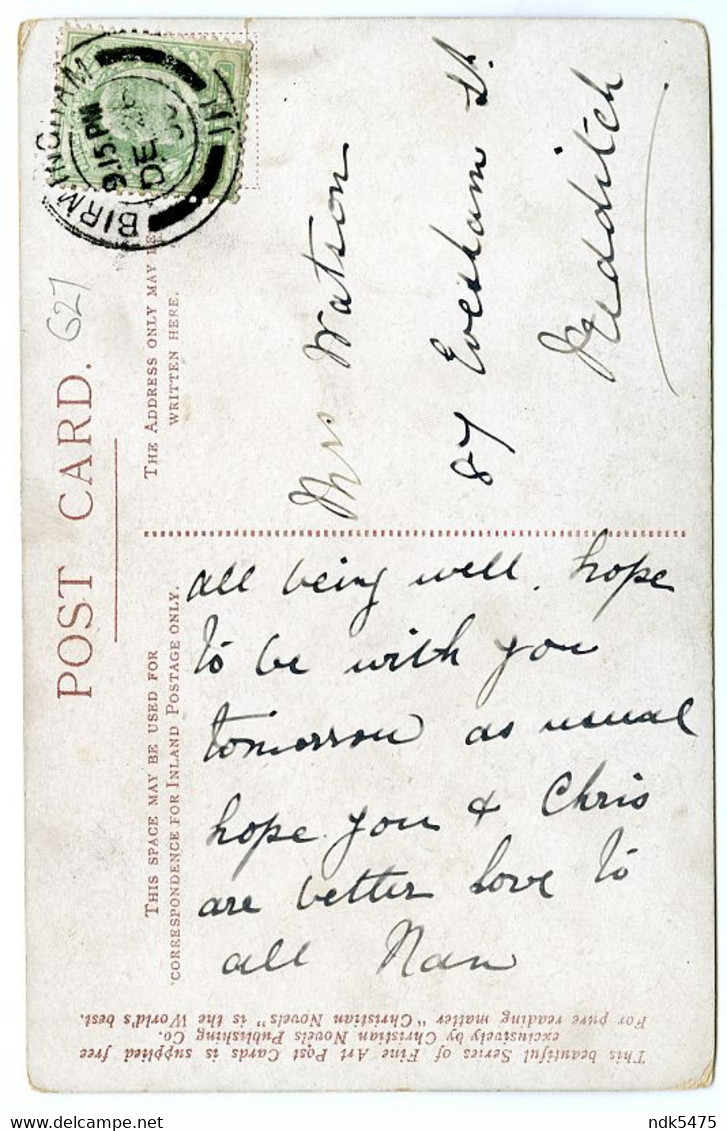 POST CARD.
627
THIS SPACE MAY BE USED FOR
CORRESPONDENCE FOR INLAND POSTAGE ONLY.
THE ADDRESS ONLY MAY BE
WRITTEN HERE.
BIRMINGHAM
9.15 PM
DE
all being well. hope
to be with you
tomorrow as usual
hope you & Chris
are better love to
all Nan
Mrs Watson
87 Evesham St
Redditch
This beautiful Series of Fine Art Post Cards is supplied free
exclusively by Christian Novels Publishing Co.
For pure reading matter "Christian Novels" is the World's best.
ndk5475